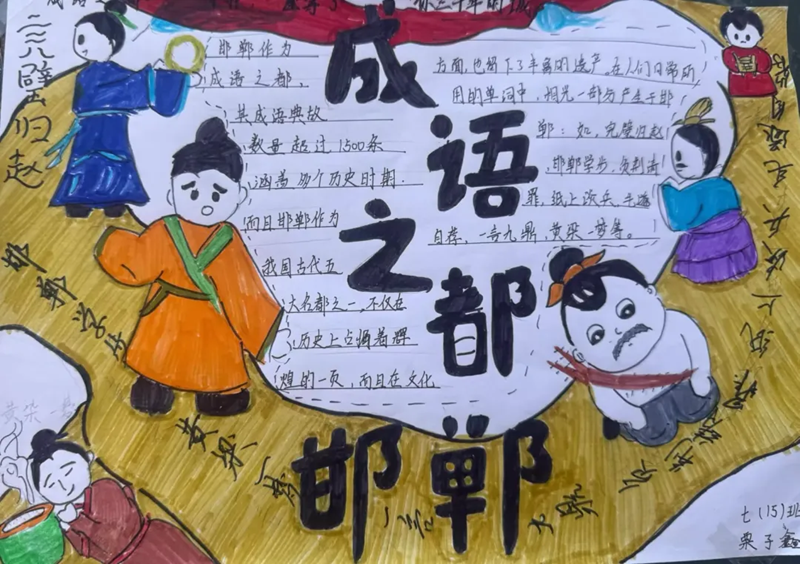 成语之都
邯郸
完璧归赵
邯郸作为
成语之都,
其成语典故
数量超过1500条
涵盖多个历史时期.
而且邯郸作为
我国古代五
大名都之一,不仅在
历史上占据着辉
煌的一页,而且在文化
方面,也留下了丰富的遗产,在人们日常所
用的单词中,相当一部分产生于邯
郸:如,完璧归赵
邯郸学步,负荆请
罪,纸上谈兵,毛遂
自荐,一言九鼎,黄粱一梦等。
邯郸学步
黄粱一梦
黄粱一梦
一言九鼎
负荆请罪
纸上谈兵
毛遂自荐
七(15)班
栗子